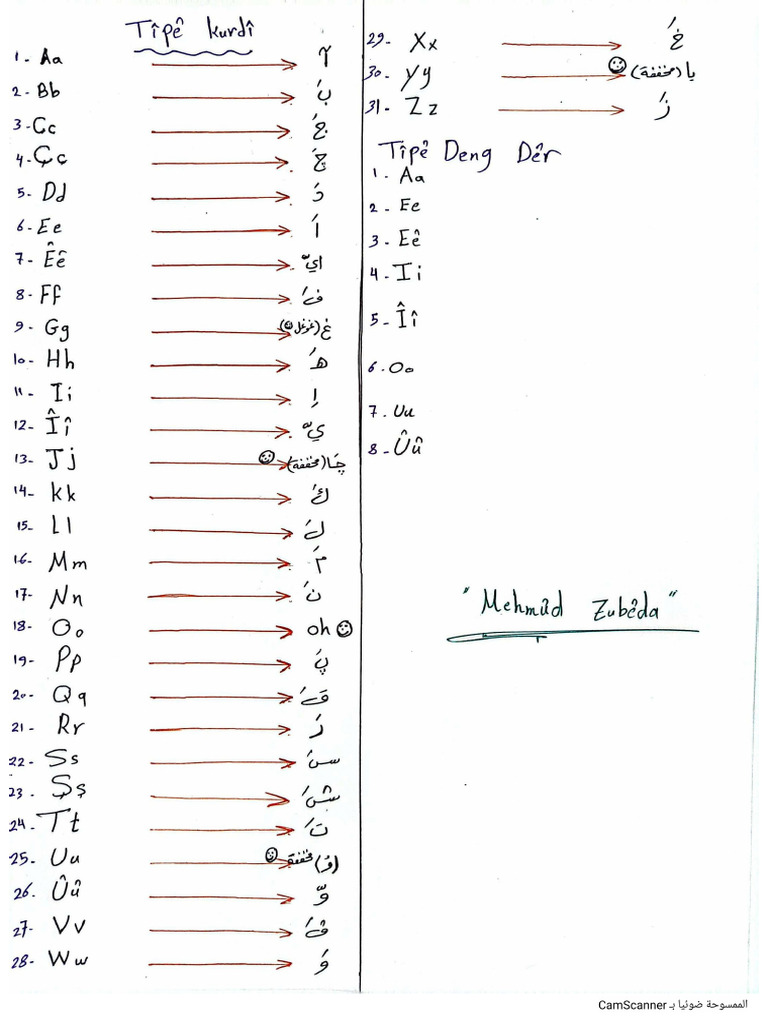 Tîpê kurdî
1- Aa → آ
2- Bb → بَ
3- Cc → جَ
4- Çç → چَ
5- Dd → دَ
6- Ee → اَ
7- Êê → ايّ
8- Ff → فَ
9- Gg → غ (غوغل)
10- Hh → هَـ
11- Ii → إِ
12- Îî → يّ
13- Jj → چَا (مخففة)
14- kk → كَ
15- Ll → لَ
16- Mm → مَ
17- Nn → نَ
18- Oo → oh
19- Pp → پَ
20- Qq → قَ
21- Rr → رَ
22- Ss → سَ
23. Şş → شَ
24- Tt → تَ
25- Uu → (وُ) مخففة
26. Ûû → وّ
27- Vv → ڤَ
28- Ww → وَ
29- Xx → خَ
30- Yy → يا (مخففة)
31- Zz → زَ
Tîpê Deng Dêr
1- Aa
2- Ee
3- Eê
4- Ii
5- Îî
6. Oo
7- Uu
8- Ûû
"Mehmûd Zubêda"
الممسوحة ضوئيا بـ CamScanner